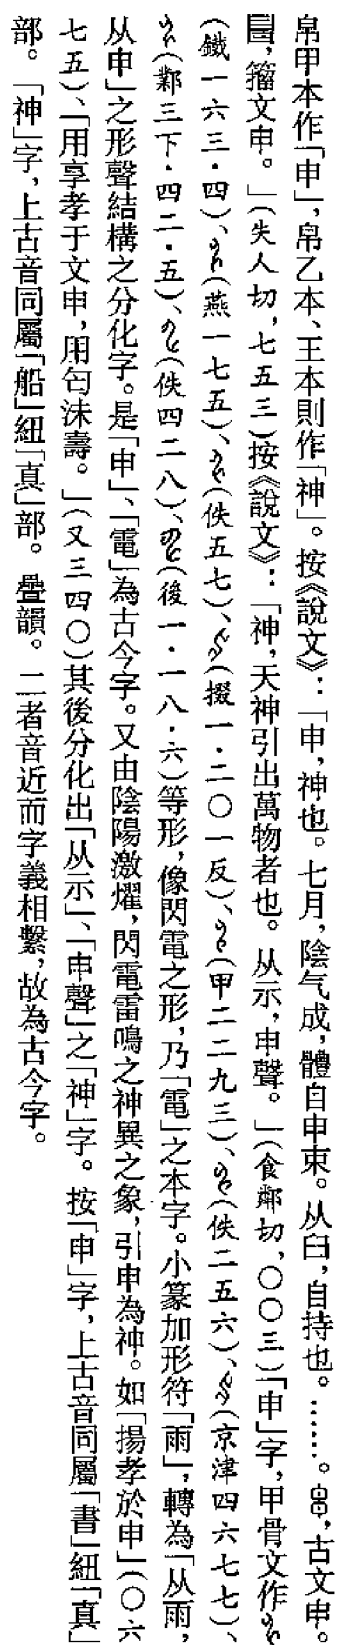 帛甲本作「申」，帛乙本、王本則作「神」。按《說文》：「申，神也。七月，陰气成，體自申束。从臼，自持也。……。，古文申。
，籀文申。」（失人切，七五三）按《說文》：「神，天神引出萬物者也。从示，申聲。」（食鄰切，〇〇三）「申」字，甲骨文作
（鐵一六三．四）、（燕一七五）、（佚五七）、（掇一．二〇一反）、（甲二二九三）、（佚二五六）、（京津四六七七）、
（鄴三下．四二．五）、（佚四二八）、（後一．一八．六）等形，像閃電之形，乃「電」之本字。小篆加形符「雨」，轉為「从雨，
从申」之形聲結構之分化字。是「申」、「電」為古今字。又由陰陽激燿，閃電雷鳴之神異之象，引申為神。如「揚孝於申」（〇六
七五）、「用享孝于文申，用匄沬壽。」（又三四〇）其後分化出「从示」、「申聲」之「神」字。按「申」字，上古音同屬「書」紐「真」
部。「神」字，上古音同屬「船」紐「真」部。疊韻。二者音近而字義相繫，故為古今字。